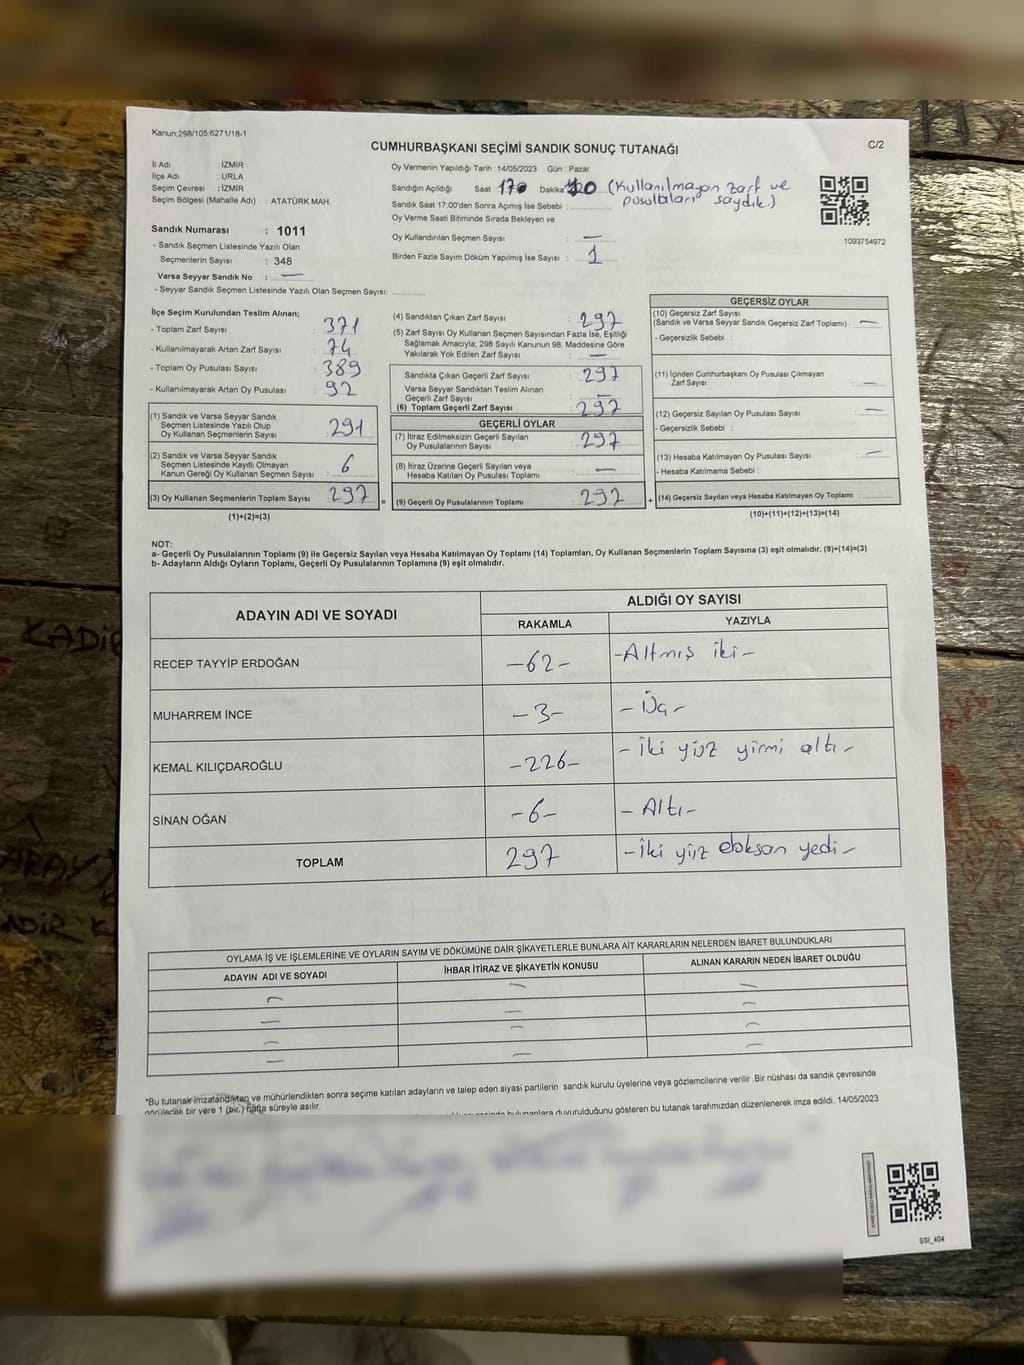 Kanun;298/105:6271/18-1
C/2
CUMHURBAŞKANI SEÇİMİ SANDIK SONUÇ TUTANAĞI
İl Adı : İZMİR
İlçe Adı : URLA
Seçim Çevresi : İZMİR
Seçim Bölgesi (Mahalle Adı) : ATATÜRK MAH.
Oy Vermenin Yapıldığı Tarih : 14/05/2023 Gün : Pazar
Sandığın Açıldığı Saat 17 Dakika (Kullanılmayan zarf ve
pusulaları saydık.)
Sandık Saat 17:00'den Sonra Açımış İse Sebebi :
Oy Verme Saati Bitiminde Sırada Bekleyen ve
Oy Kullandırılan Seçmen Sayısı : —
Birden Fazla Sayım Döküm Yapılmış İse Sayısı : 1
1093754972
Sandık Numarası : 1011
- Sandık Seçmen Listesinde Yazılı Olan
Seçmenlerin Sayısı : 348
Varsa Seyyar Sandık No : —
- Seyyar Sandık Seçmen Listesinde Yazılı Olan Seçmen Sayısı:
İlçe Seçim Kurulundan Teslim Alınan;
- Toplam Zarf Sayısı : 371
- Kullanılmayarak Artan Zarf Sayısı : 74
- Toplam Oy Pusulası Sayısı : 389
- Kullanılmayarak Artan Oy Pusulası : 92
(1) Sandık ve Varsa Seyyar Sandık
Seçmen Listesinde Yazılı Olup
Oy Kullanan Seçmenlerin Sayısı : 291
(2) Sandık ve Varsa Seyyar Sandık
Seçmen Listesinde Kayıtlı Olmayan
Kanun Gereği Oy Kullanan Seçmen Sayısı : 6
(3) Oy Kullanan Seçmenlerin Toplam Sayısı : 297 =
(1)+(2)=(3)
(4) Sandıktan Çıkan Zarf Sayısı : 297
(5) Zarf Sayısı Oy Kullanan Seçmen Sayısından Fazla İse, Eşitliği
Sağlamak Amacıyla, 298 Sayılı Kanunun 98. Maddesine Göre
Yakılarak Yok Edilen Zarf Sayısı : —
Sandıkta Çıkan Geçerli Zarf Sayısı : 297
Varsa Seyyar Sandıktan Teslim Alınan
Geçerli Zarf Sayısı : —
(6) Toplam Geçerli Zarf Sayısı : 297
GEÇERLİ OYLAR
(7) İtiraz Edilmeksizin Geçerli Sayılan
Oy Pusulalarının Sayısı : 297
(8) İtiraz Üzerine Geçerli Sayılan veya
Hesaba Katılan Oy Pusulası Toplamı : —
(9) Geçerli Oy Pusulalarının Toplamı : 297 +
GEÇERSİZ OYLAR
(10) Geçersiz Zarf Sayısı
(Sandık ve Varsa Seyyar Sandık Geçersiz Zarf Toplamı) : —
- Geçersizlik Sebebi :
(11) İçinden Cumhurbaşkanı Oy Pusulası Çıkmayan
Zarf Sayısı : —
(12) Geçersiz Sayılan Oy Pusulası Sayısı : —
- Geçersizlik Sebebi :
(13) Hesaba Katılmayan Oy Pusulası Sayısı : —
- Hesaba Katılmama Sebebi :
(14) Geçersiz Sayılan veya Hesaba Katılmayan Oy Toplamı :
(10)+(11)+(12)+(13)=(14)
NOT:
a- Geçerli Oy Pusulalarının Toplamı (9) ile Geçersiz Sayılan veya Hesaba Katılmayan Oy Toplamı (14) Toplamları, Oy Kullanan Seçmenlerin Toplam Sayısına (3) eşit olmalıdır. (9)+(14)=(3)
b- Adayların Aldığı Oyların Toplamı, Geçerli Oy Pusulalarının Toplamına (9) eşit olmalıdır.
ADAYIN ADI VE SOYADI
ALDIĞI OY SAYISI
RAKAMLA YAZIYLA
RECEP TAYYİP ERDOĞAN -62- -Altmış iki-
MUHARREM İNCE -3- -Üç-
KEMAL KILIÇDAROĞLU -226- -İki yüz yirmi altı-
SİNAN OĞAN -6- -Altı-
TOPLAM 297 -İki yüz doksan yedi-
OYLAMA İŞ VE İŞLEMLERİNE VE OYLARIN SAYIM VE DÖKÜMÜNE DAİR ŞİKAYETLERLE BUNLARA AİT KARARLARIN NELERDEN İBARET BULUNDUKLARI
ADAYIN ADI VE SOYADI İHBAR İTİRAZ VE ŞİKAYETİN KONUSU ALINAN KARARIN NEDEN İBARET OLDUĞU
*Bu tutanak imzalandıktan ve mühürlendikten sonra seçime katılan adayların ve talep eden siyasi partilerin sandık kurulu üyelerine veya gözlemcilerine verilir .Bir nüshası da sandık çevresinde
görülecek bir yere 1 (bir) hafta süreyle asılır.
bulunanlara duyurulduğunu gösteren bu tutanak tarafımızdan düzenlenerek imza edildi. 14/05/2023
KADİR